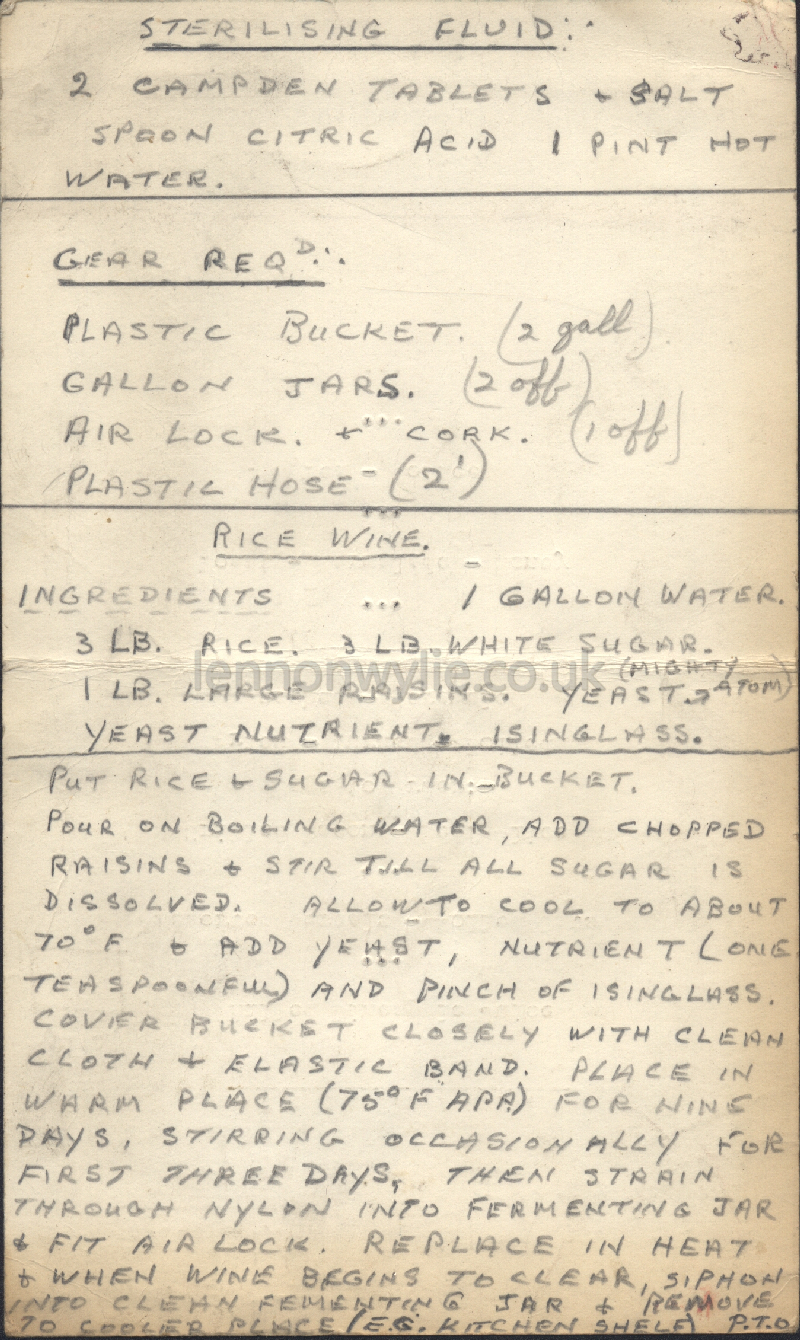 STERILISING FLUID:·
2 CAMPDEN TABLETS + SALT
SPOON CITRIC ACID 1 PINT HOT
WATER.
GEAR REQD:·
PLASTIC BUCKET. (2 gall)
GALLON JARS. (2 off)
AIR LOCK. + CORK. (1 off)
PLASTIC HOSE (2')
RICE WINE.
INGREDIENTS ... 1 GALLON WATER.
3 LB. RICE. 3 LB. WHITE SUGAR.
lennonwylie.co.uk
1 LB. LARGE RAISINS. YEAST. (MIGHTY ATOM)
YEAST NUTRIENT. ISINGLASS.
PUT RICE & SUGAR IN BUCKET.
POUR ON BOILING WATER, ADD CHOPPED
RAISINS & STIR TILL ALL SUGAR IS
DISSOLVED. ALLOW TO COOL TO ABOUT
70°F & ADD YEAST, NUTRIENT (ONE
TEASPOONFUL) AND PINCH OF ISINGLASS.
COVER BUCKET CLOSELY WITH CLEAN
CLOTH + ELASTIC BAND. PLACE IN
WARM PLACE (75°F APR) FOR NINE
DAYS, STIRRING OCCASIONALLY FOR
FIRST THREE DAYS, THEN STRAIN
THROUGH NYLON INTO FERMENTING JAR
& FIT AIR LOCK. REPLACE IN HEAT
& WHEN WINE BEGINS TO CLEAR, SIPHON
INTO CLEAN FEMENTING JAR & REMOVE
TO COOLER PLACE (E.G. KITCHEN SHELF) P.T.O